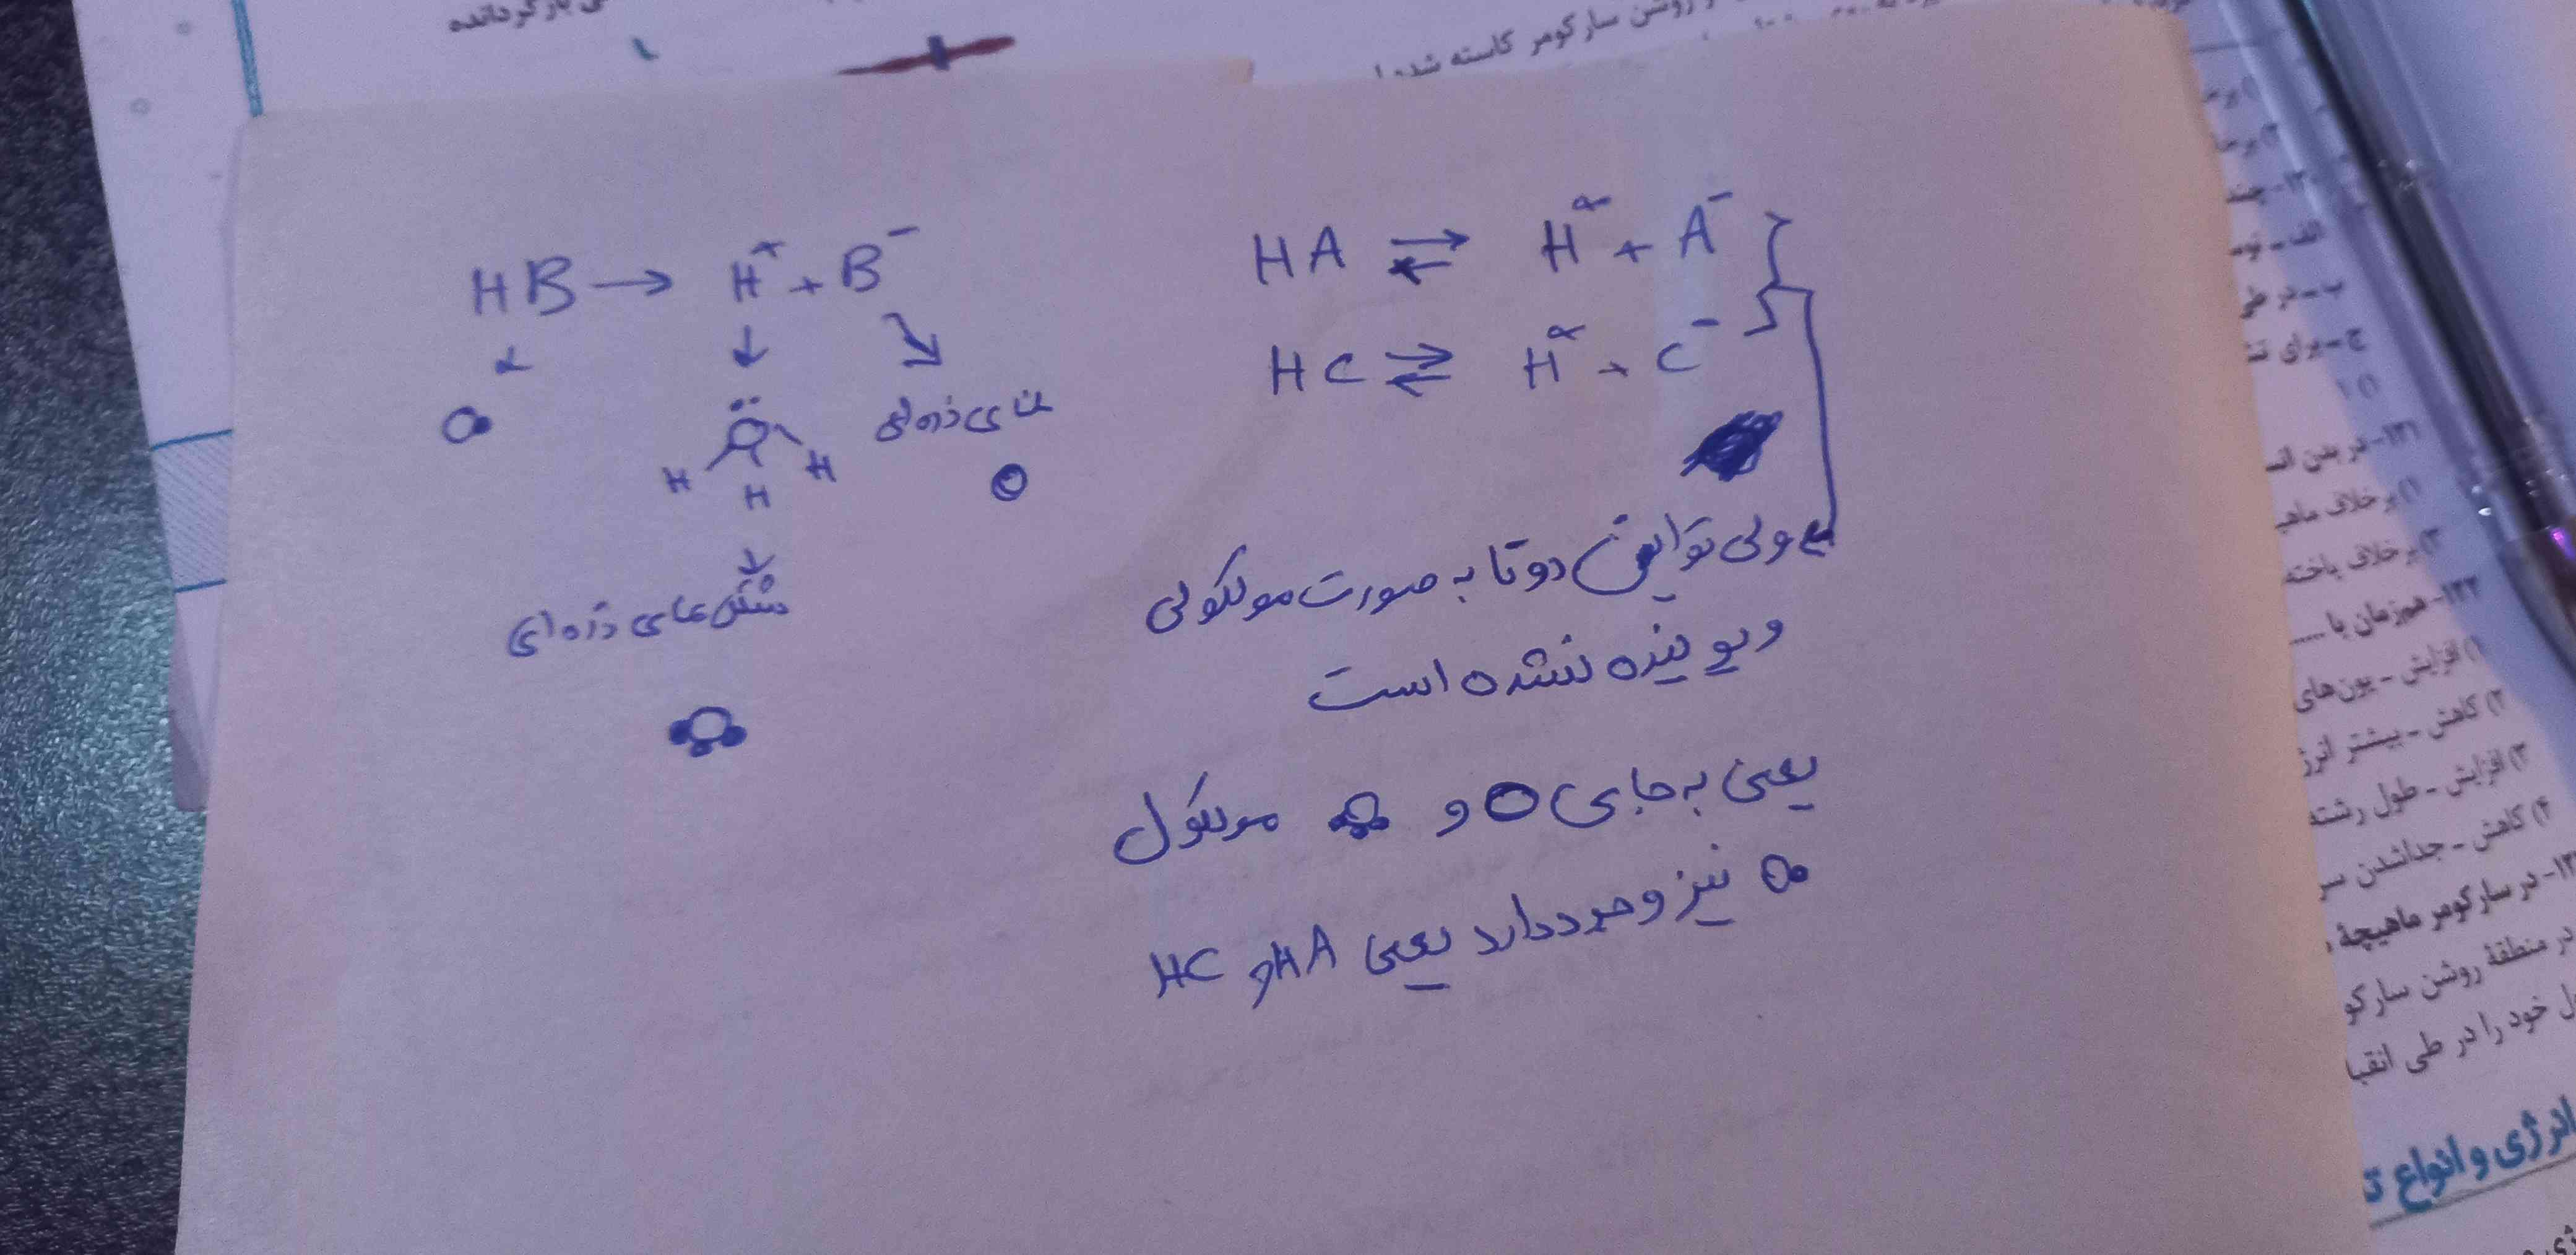 بازگردانده
روشن سارکومر کاسته شده
HB → H⁺ + B⁻
H H
H
نمای ذره‌ای
شکل های ذره ای
HA ⇌ H⁺ + A⁻
HC ⇌ H⁺ + C⁻
ولی تو این دوتا به صورت مولکولی
و یونیزه نشده است
یعنی به جای و مولکول
نیز وجود دارد یعنی HA و HC
۱۳۱- در بدن انس
۱) برخلاف ماهی
۳) برخلاف یاخته
۱۳۲- همزمان با .....
۱) افزایش - یون‌های
۲) کاهش - بیشتر انرژ
۳) افزایش - طول رشته
۴) کاهش - جداشدن سر
در سارکومر ماهیچهٔ
در منطقهٔ روشن سارکو
ل خود را در طی انقبا
انرژی و انواع ت